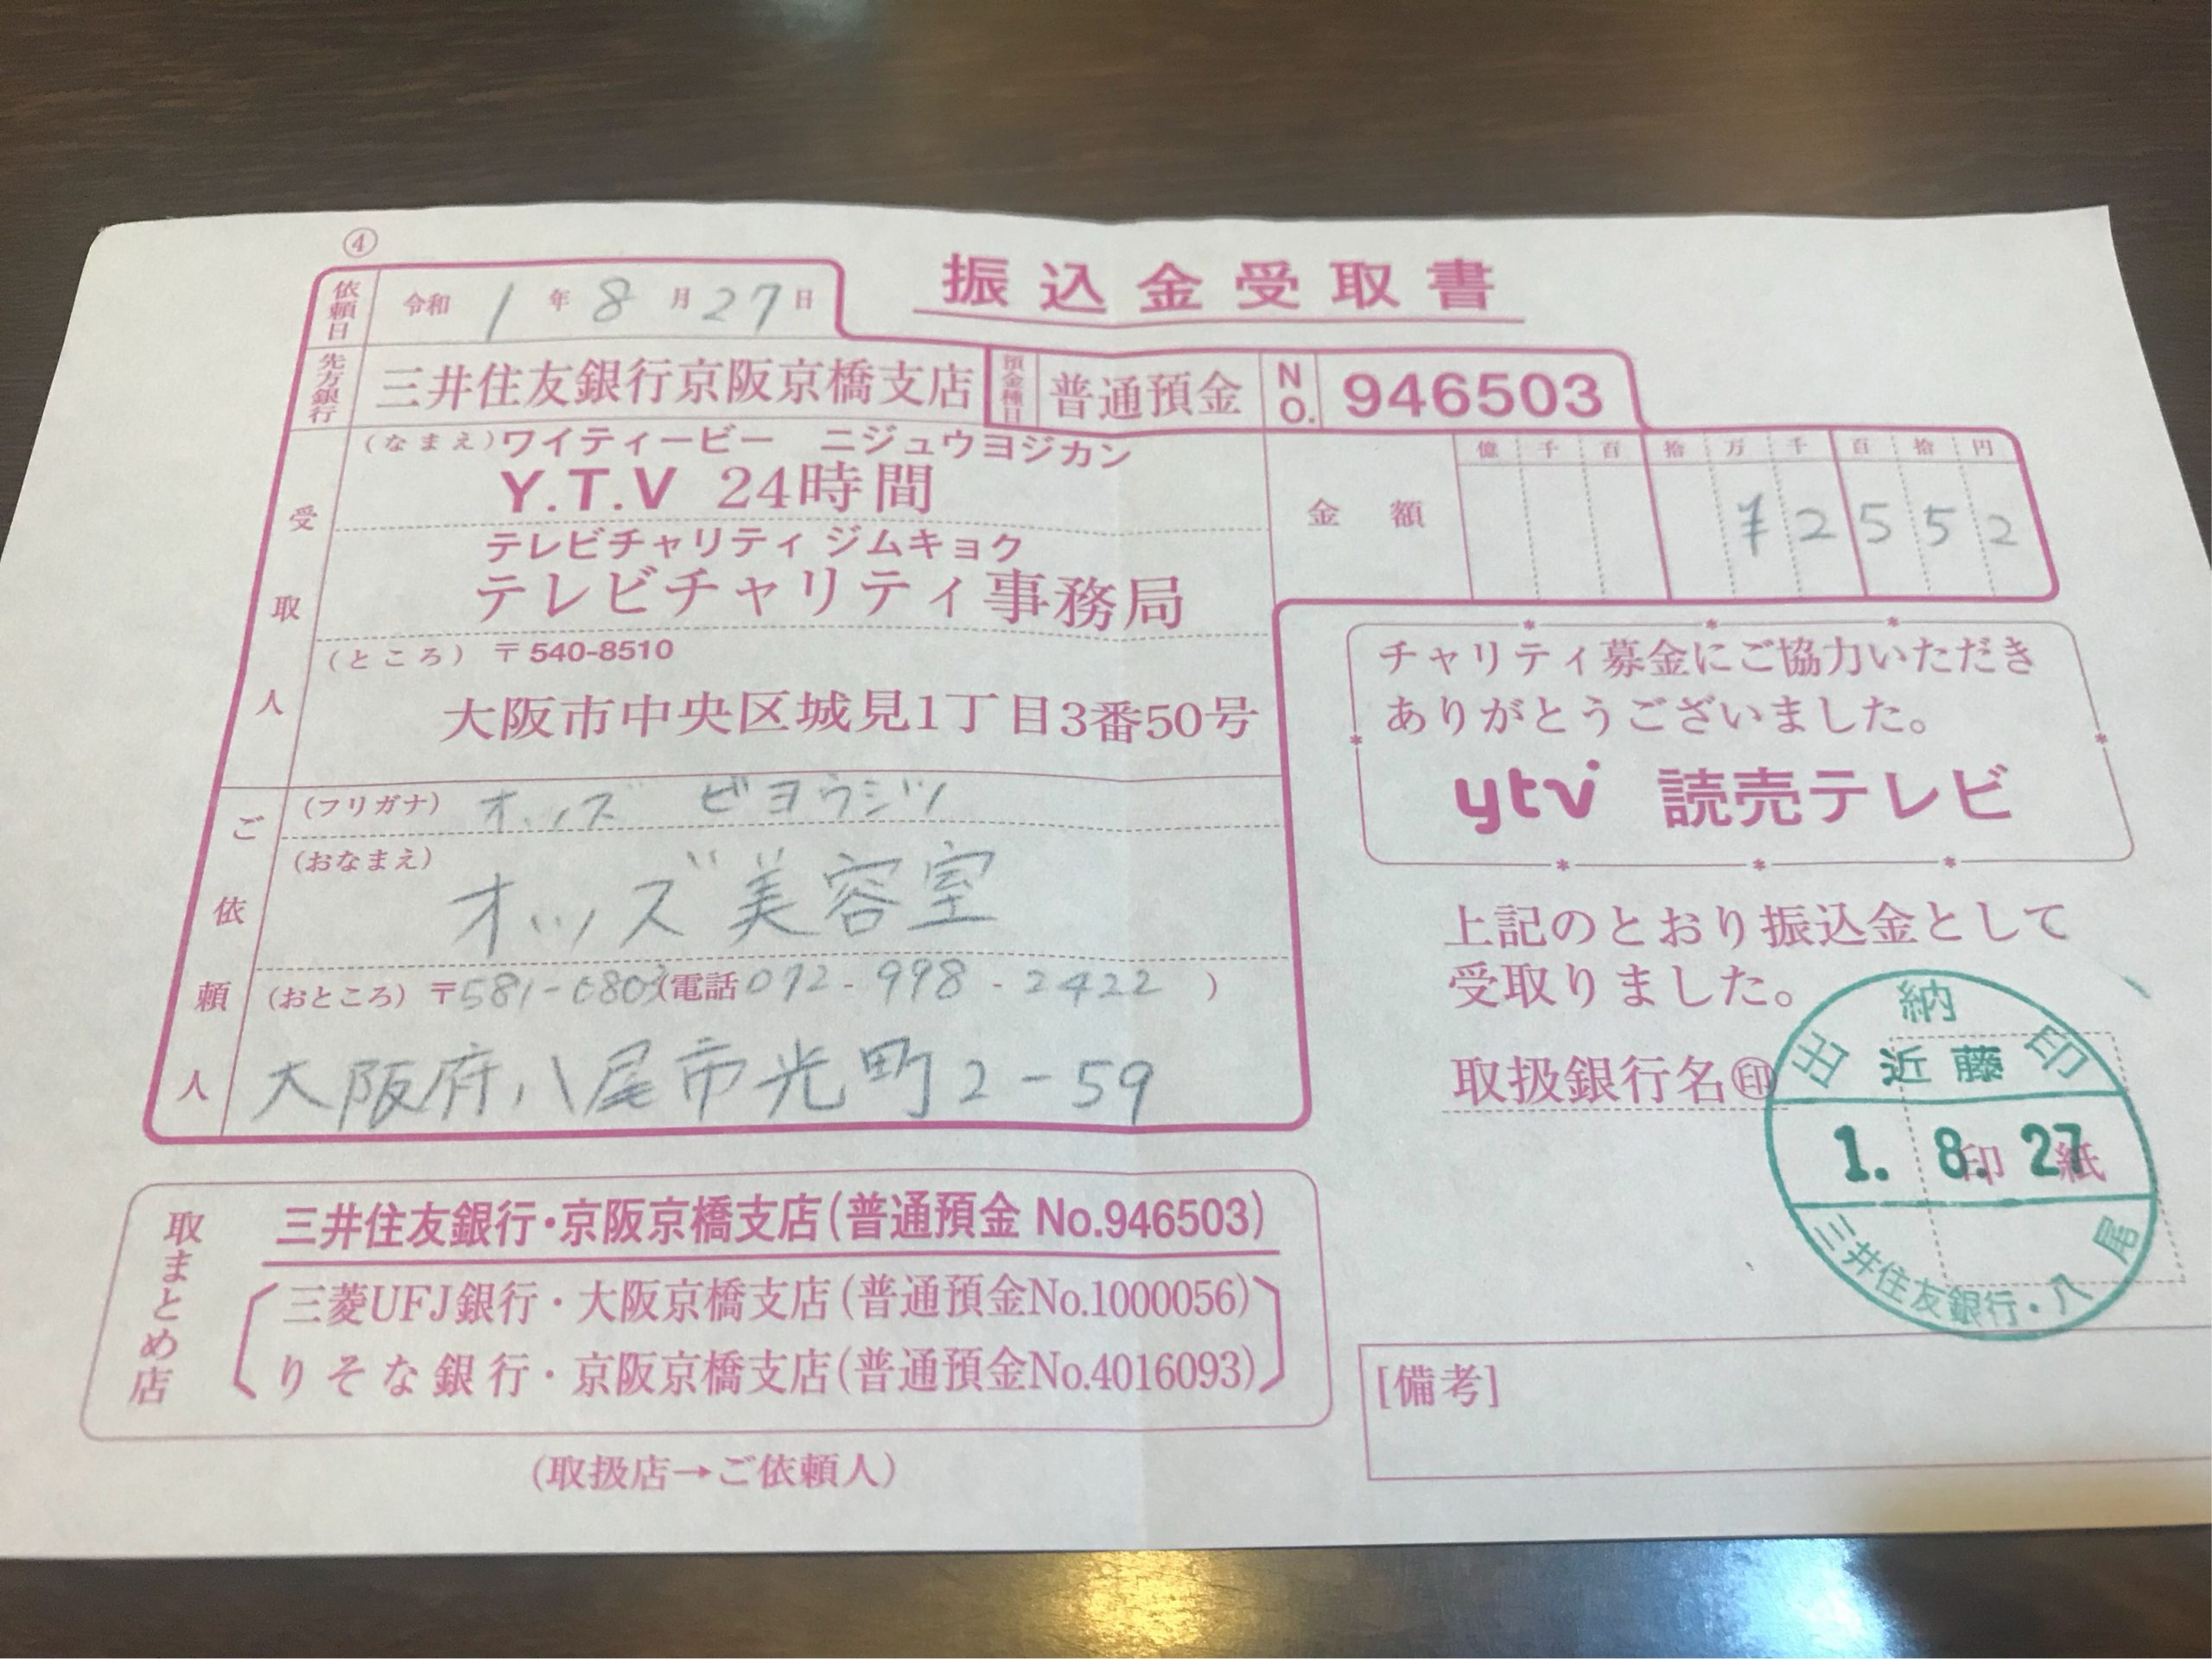 ④
振込金受取書
依頼日 令和 1年 8月 27日
先方銀行 三井住友銀行京阪京橋支店 預金種目 普通預金 NO. 946503
受取人
(なまえ) ワイティービー ニジュウヨジカン
Y.T.V 24時間
テレビチャリティ ジムキョク
テレビチャリティ事務局
(ところ) 〒540-8510
大阪市中央区城見1丁目3番50号
金額 億 千 百 拾 万 千 百 拾 円
¥2552
ご依頼人
(フリガナ) オッズ ビヨウシツ
(おなまえ)
オッズ美容室
(おところ) 〒581-0803 (電話 072-998-2422)
大阪府八尾市光町2-59
チャリティ募金にご協力いただき
ありがとうございました。
ytv 読売テレビ
上記のとおり振込金として
受取りました。
取扱銀行名㊞
出納印
近藤
1. 8. 27
印紙
三井住友銀行・八尾
取まとめ店
三井住友銀行・京阪京橋支店(普通預金 No.946503)
三菱UFJ銀行・大阪京橋支店(普通預金No.1000056)
りそな銀行・京阪京橋支店(普通預金No.4016093)
(取扱店→ご依頼人)
[備考]